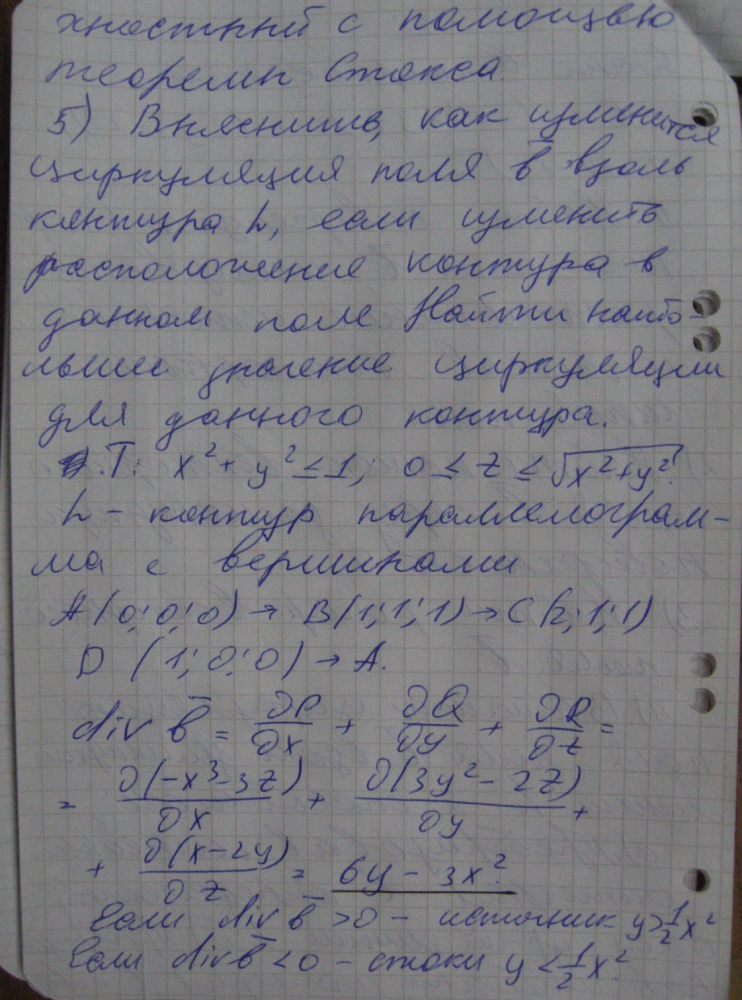 хностный с помощью
теоремы Стокса
5) Выяснить, как изменится
циркуляция поля b̅ вдоль
контура L, если изменить
расположение контура в
данном поле Найти наибо-
льшее значение циркуляции
для данного контура.
T: x² + y² ≤ 1; 0 ≤ z ≤ √x²+y²
L - контур параллелограм-
ма с вершинами
A(0;0;0) → B(1;1;1) → C(2;1;1)
D (1;0;0) → A.
div b̅ = ∂P/∂x + ∂Q/∂y + ∂R/∂z =
= ∂(-x³-3z)/∂x + ∂(3y²-2z)/∂y +
+ ∂(x-2y)/∂z = 6y - 3x².
Если div b̅ > 0 - источник y > 1/2 x²
Если div b̅ < 0 - стоки y < 1/2 x²